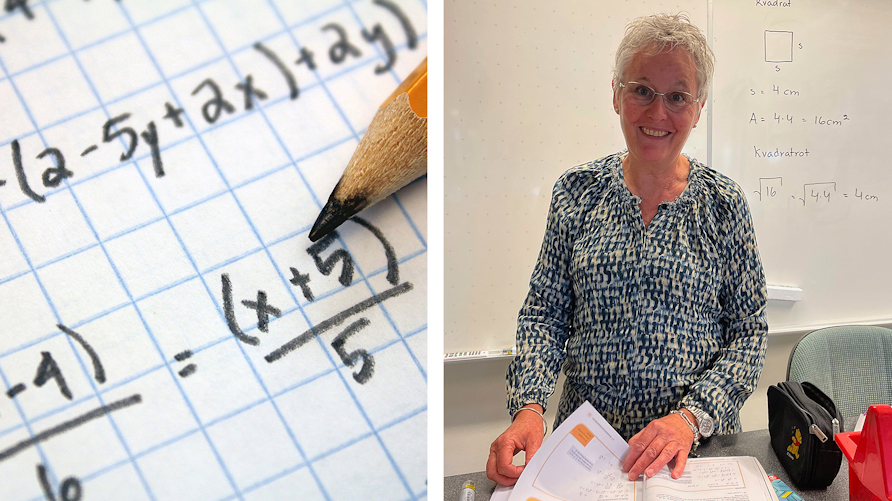 -(2-5y+2x)+2y)
-4) = (x+5)
6 5
Kvadrat
s
s
s = 4 cm
A = 4·4 = 16 cm²
Kvadratrot
√16 = √4·4 = 4 cm